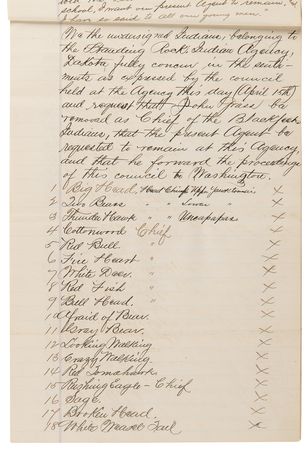 school, I want our present Agent to remain, &
I have so said to all our young men.
We the undersigned Indians, belonging to
the Standing Rock Indian Agency,
Dakota fully concur in the senti-
ments as expressed by the council
held at the Agency this day (April 15th)
and request that John Grass be
removed as Chief of the Blackfeet
Indians, that the present Agent be
requested to remain at this Agency,
and that he forward the proceedings
of this council to Washington.
1 Big Head, Head Chief Upp. Yanctonais x
2 Two Bears " " Lower " x
3 Thunder Hawk " " Uncapapas x
4 Cottonwood Chief x
5 Red Bull " x
6 Fire Heart " x
7 White Deer " x
8 Red Fish " x
9 Bell Head. " x
10 Afraid of Bear. x
11 Gray Bear. x
12 Looking Walking x
13 Crazy Walking x
14 Red Tomahawk x
15 Rushing Eagle - Chief x
16 Sage. x
17 Broken Head. x
18 White Weasel Tail x